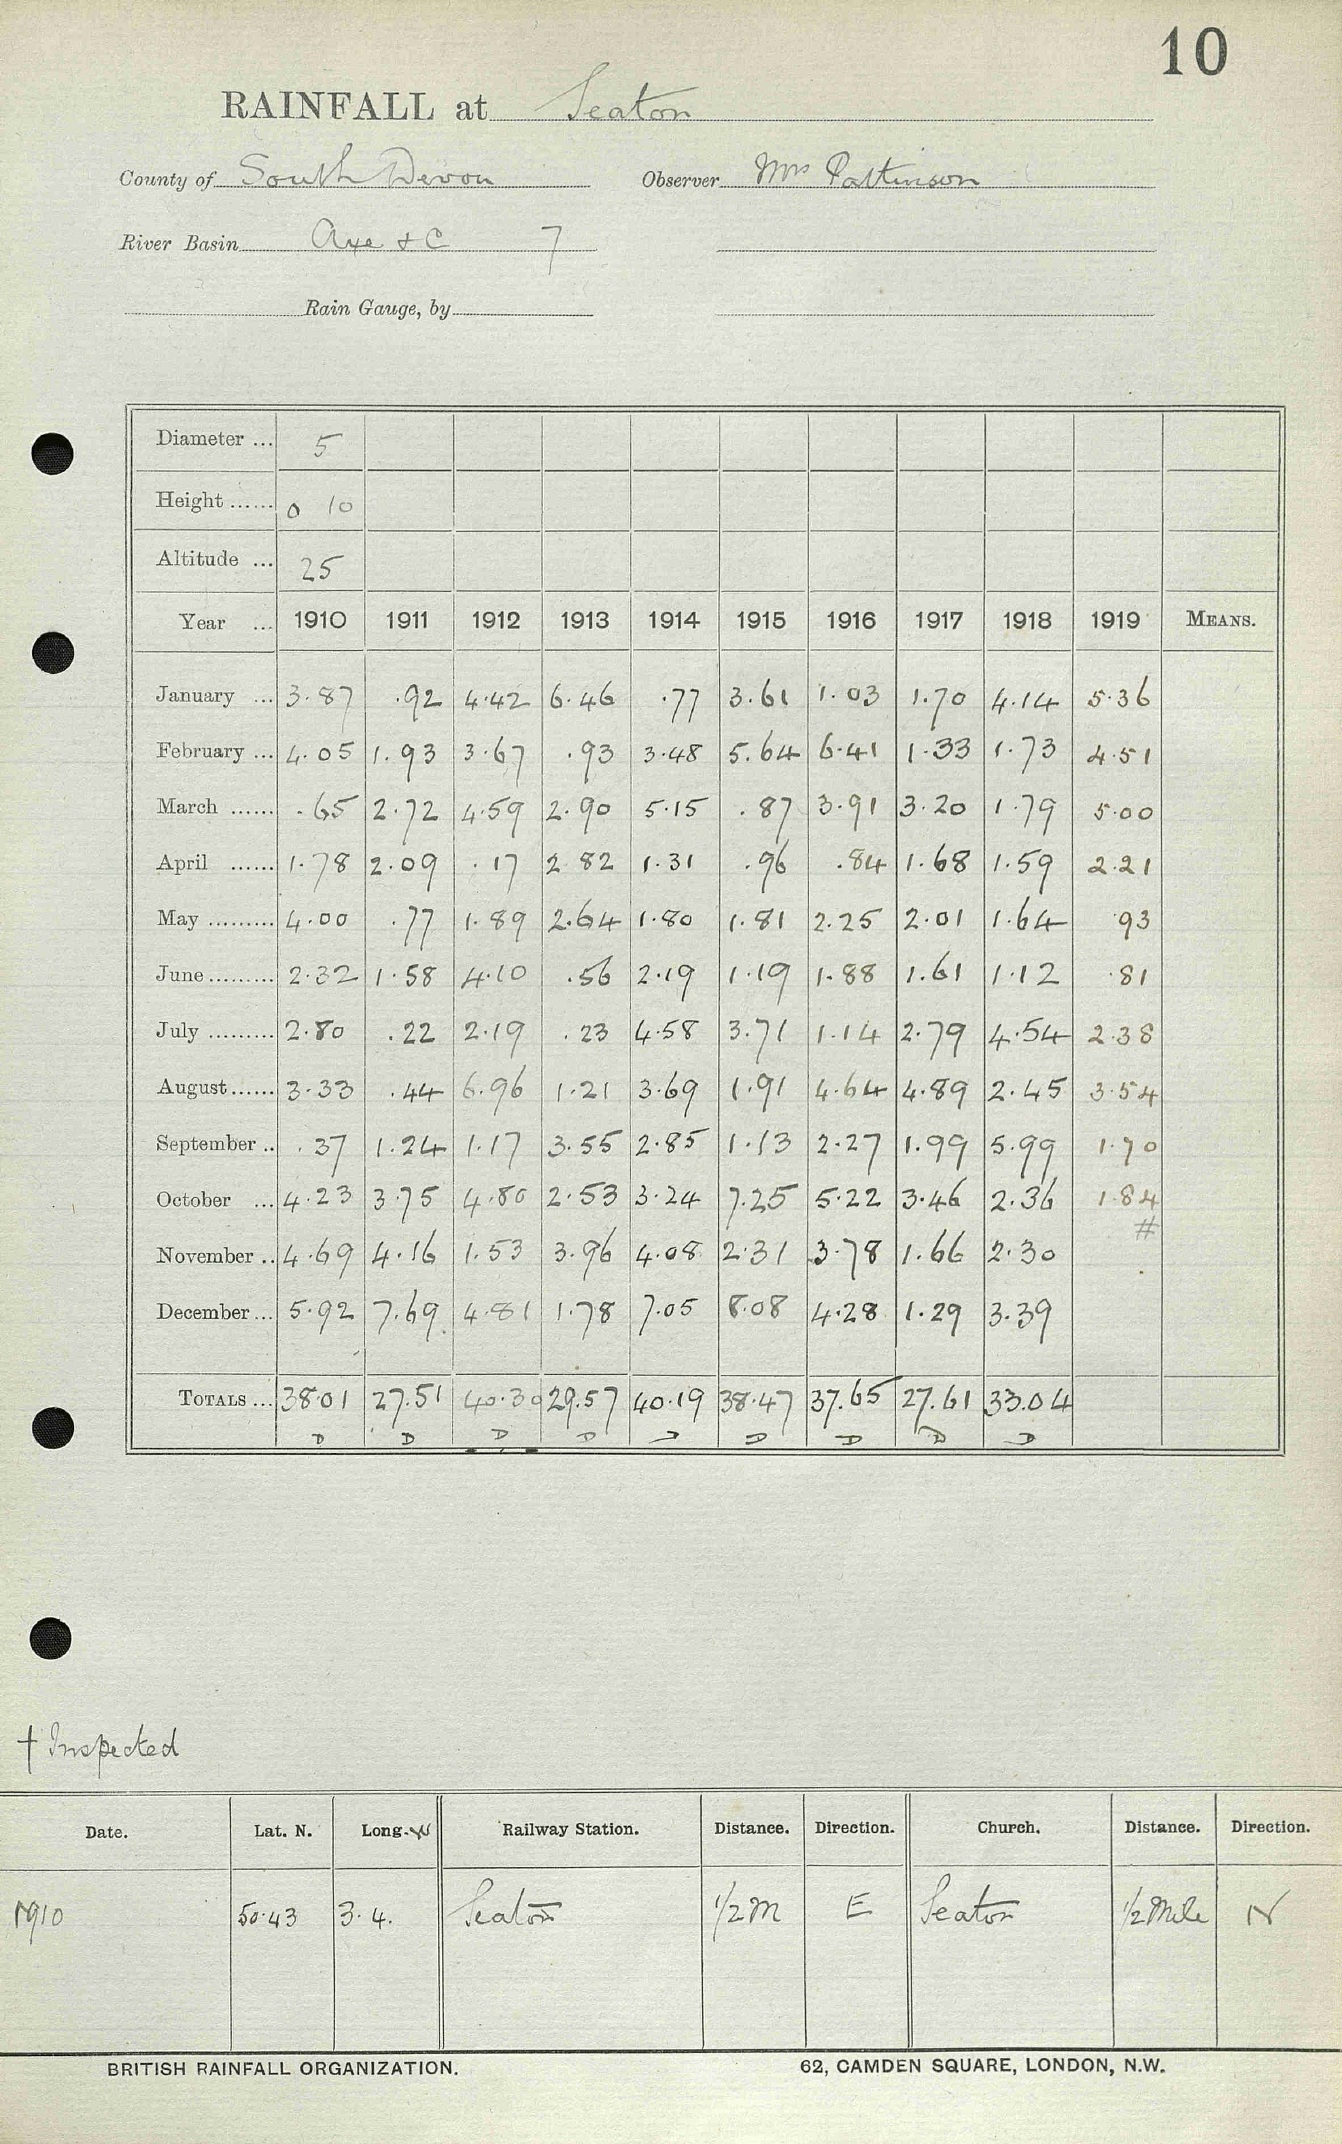 10
RAINFALL at Seaton
County of South Devon Observer Mrs Pattinson
River Basin Axe & C 7
Rain Gauge, by
Diameter ... 5
Height ...... 0 10
Altitude ... 25
Year ... 1910 1911 1912 1913 1914 1915 1916 1917 1918 1919 MEANS.
January ... 3.87 .92 4.42 6.46 .77 3.61 1.03 1.70 4.14 5.36
February ... 4.05 1.93 3.67 .93 3.48 5.64 6.41 1.33 1.73 4.51
March ...... .65 2.72 4.59 2.90 5.15 .87 3.91 3.20 1.79 5.00
April ...... 1.78 2.09 .17 2.82 1.31 .96 .84 1.68 1.59 2.21
May ......... 4.00 .77 1.89 2.64 1.80 1.81 2.25 2.01 1.64 .93
June ......... 2.32 1.58 4.10 .56 2.19 1.19 1.88 1.61 1.12 .81
July ......... 2.80 .22 2.19 .23 4.58 3.71 1.14 2.79 4.54 2.38
August ...... 3.33 .44 6.96 1.21 3.69 1.91 4.64 4.89 2.45 3.54
September .. .37 1.24 1.17 3.55 2.85 1.13 2.27 1.99 5.99 1.70
October ... 4.23 3.75 4.80 2.53 3.24 7.25 5.22 3.46 2.36 1.84
#
November .. 4.69 4.16 1.53 3.96 4.08 2.31 3.78 1.66 2.30
December ... 5.92 7.69 4.81 1.78 7.05 8.08 4.28 1.29 3.39
TOTALS ... 38.01 27.51 40.30 29.57 40.19 38.47 37.65 27.61 33.04
D D D D D D D D D
† Inspected
Date. Lat. N. Long. W Railway Station. Distance. Direction. Church. Distance. Direction.
1910 50.43 3.4. Seaton 1/2 M E Seaton 1/2 Mile N
BRITISH RAINFALL ORGANIZATION. 62, CAMDEN SQUARE, LONDON, N.W.